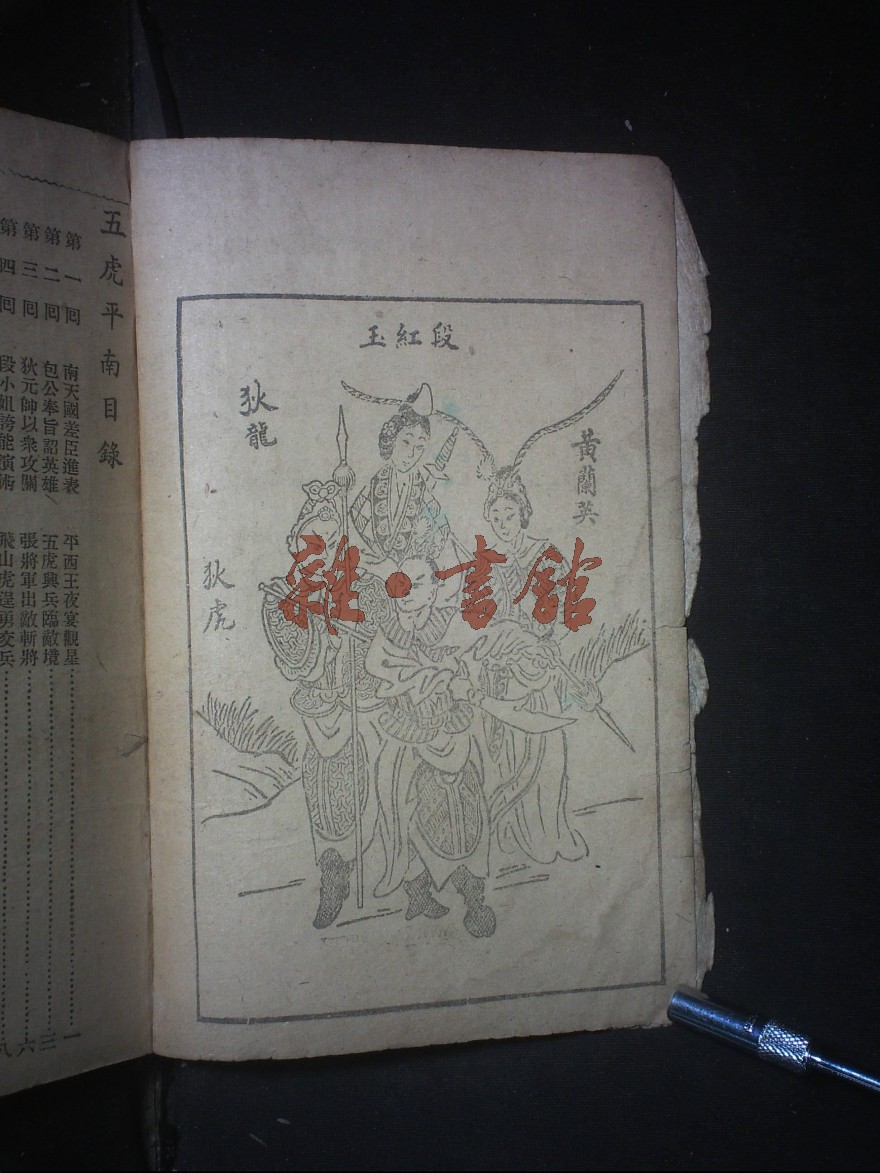 段紅玉
黃蘭英
狄龍
狄虎
雜·書館
五虎平南目錄
第一回 南天國差臣進表 平西王夜宴觀星 一
第二回 包公奉旨詔英雄 五虎興兵臨敵境 三
第三回 狄元帥以衆攻關 張將軍出敵斬將 六
第四回 段小姐誇能演術 飛山虎逞勇交兵 八